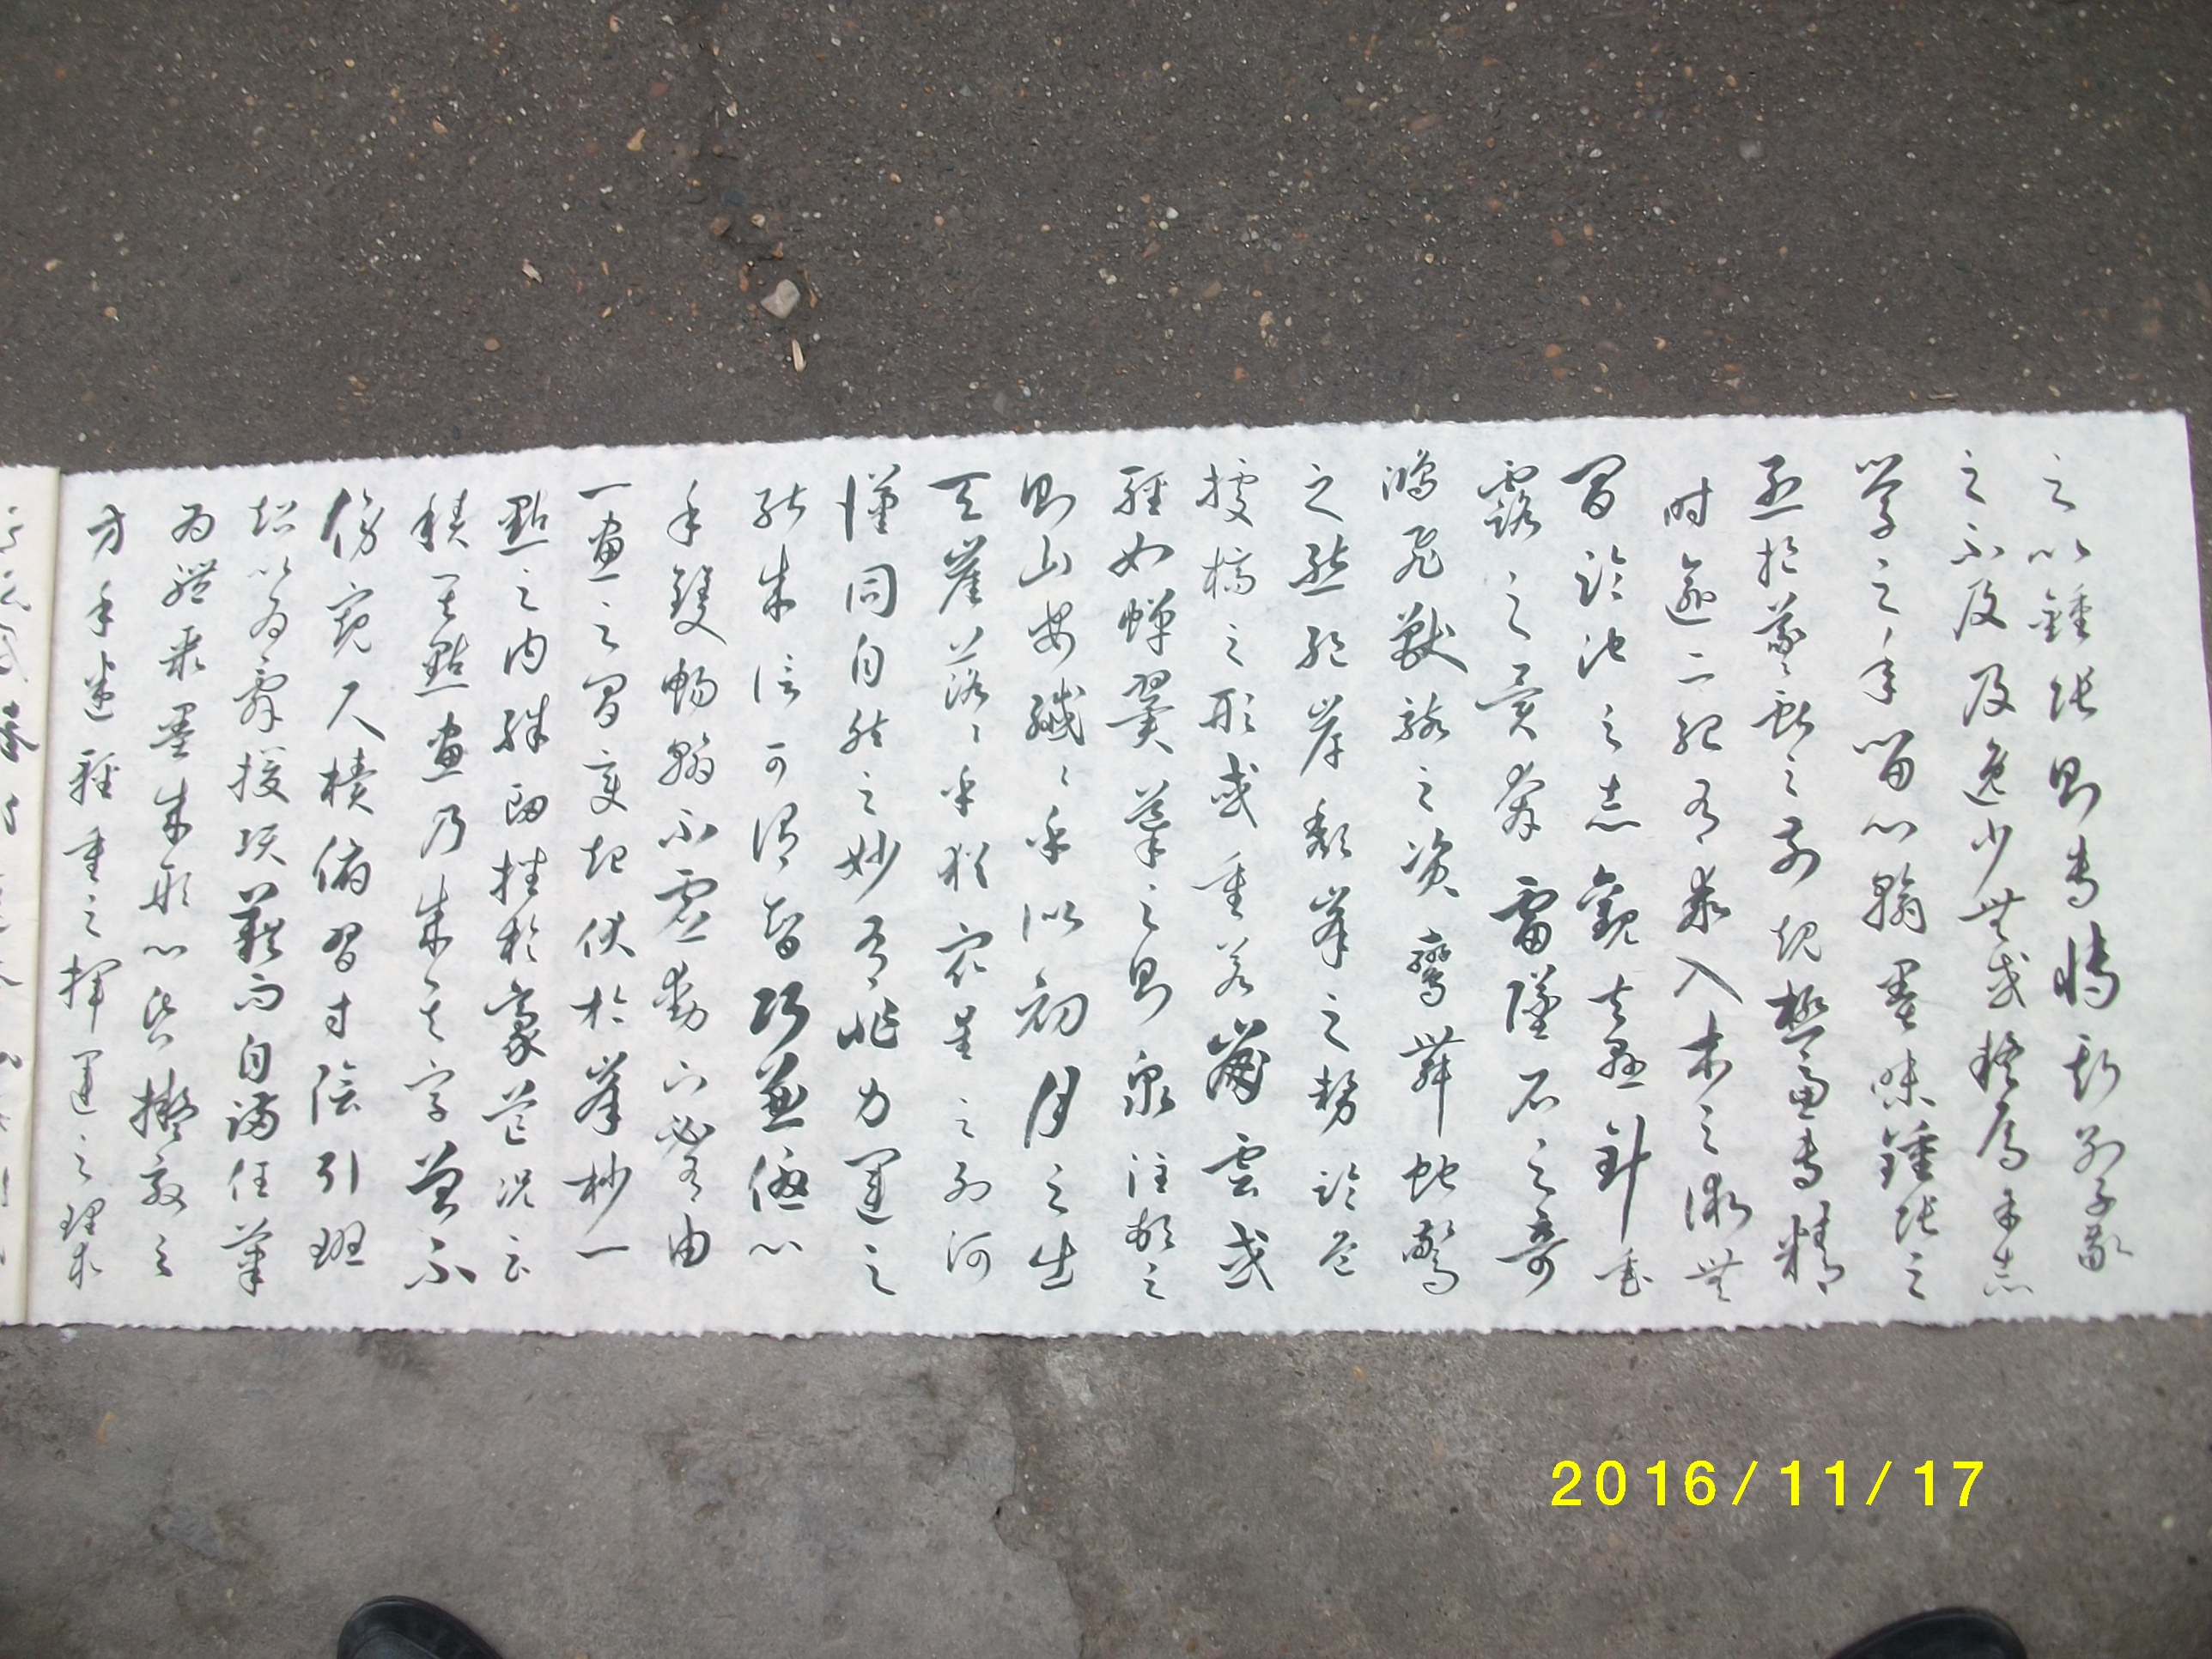 之以鍾張則專博斯別子敬
之不及及逸少無或疑焉余志
學之年留心翰墨味鍾張之
烈挹羲獻之前規極慮專精
時逾二紀有乖入木之術無
間臨池之志觀夫懸針垂
露之異奔雷墜石之奇
鴻飛獸駭之資鸞舞蛇驚
之態絕岸頹峯之勢臨危
據槁之形或重若崩雲或
輕如蟬翼導之則泉注頓之
則山安纖〻乎似初月之出
天崖落〻乎猶衆星之列河
漢同自然之妙有非力運之
能成信可謂智巧兼優心
手雙暢翰不虛動下必有由
一畫之間變起伏於峯杪一
點之內殊衄挫於豪芒況云
積其點畫乃成其字曾不
傍窺尺櫝俯習寸陰引班
超以為辭援項籍而自滿任筆
為體聚墨成形心昏擬效之
方手迷輕重之揮運之理求
2016/11/17